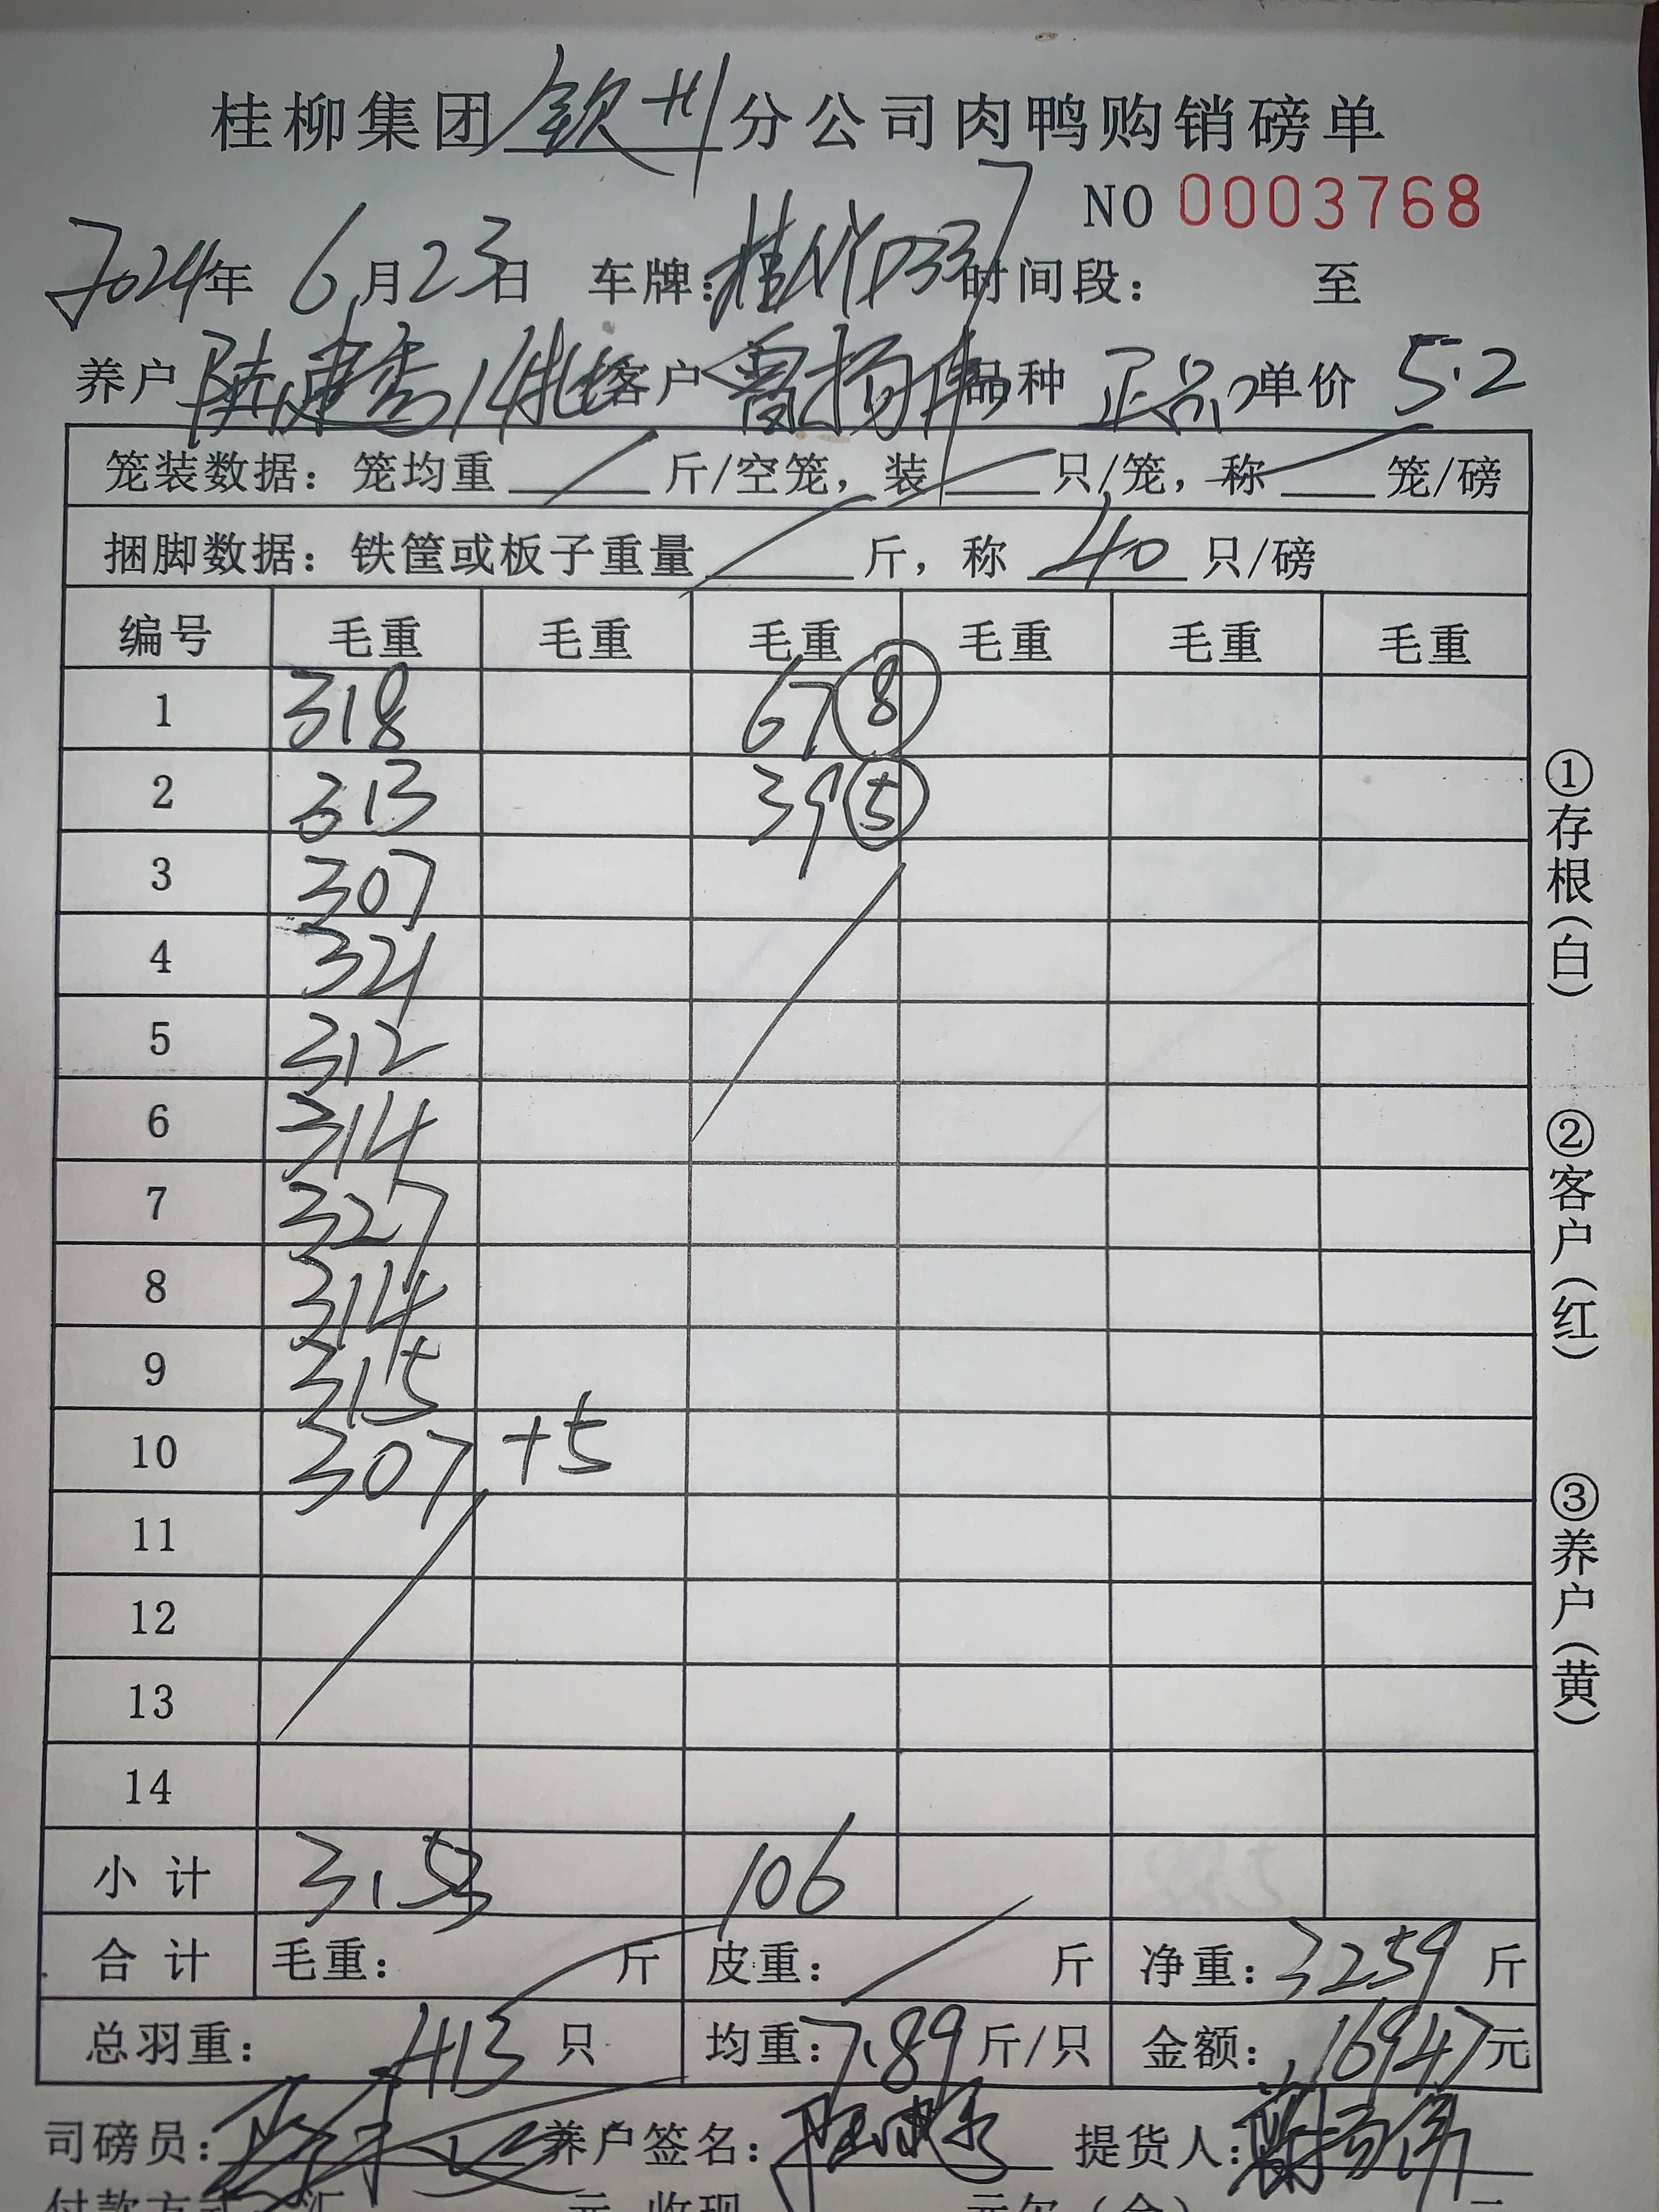 桂柳集团钦州分公司肉鸭购销磅单
NO 0003768
2024年 6月23日 车牌: 时间段: 至
养户 14批 客户 品种 正品 单价 5.2
笼装数据: 笼均重 斤/空笼, 装 只/笼, 称 笼/磅
捆脚数据: 铁筐或板子重量 斤, 称 40 只/磅
编号 毛重 毛重 毛重 毛重 毛重 毛重
1 318 67 8
2 313 39 5
3 307
4 321
5 312
6 314
7 327
8 314
9 315
10 307 +5
11
12
13
14
小计 3153 106
合计 毛重: 斤 皮重: 斤 净重: 3259 斤
总羽重: 413 只 均重: 7.89 斤/只 金额: 16947 元
司磅员: 养户签名: 提货人:
付款方式 汇 元 收现 元欠(余) 元
①存根(白)
②客户(红)
③养户(黄)